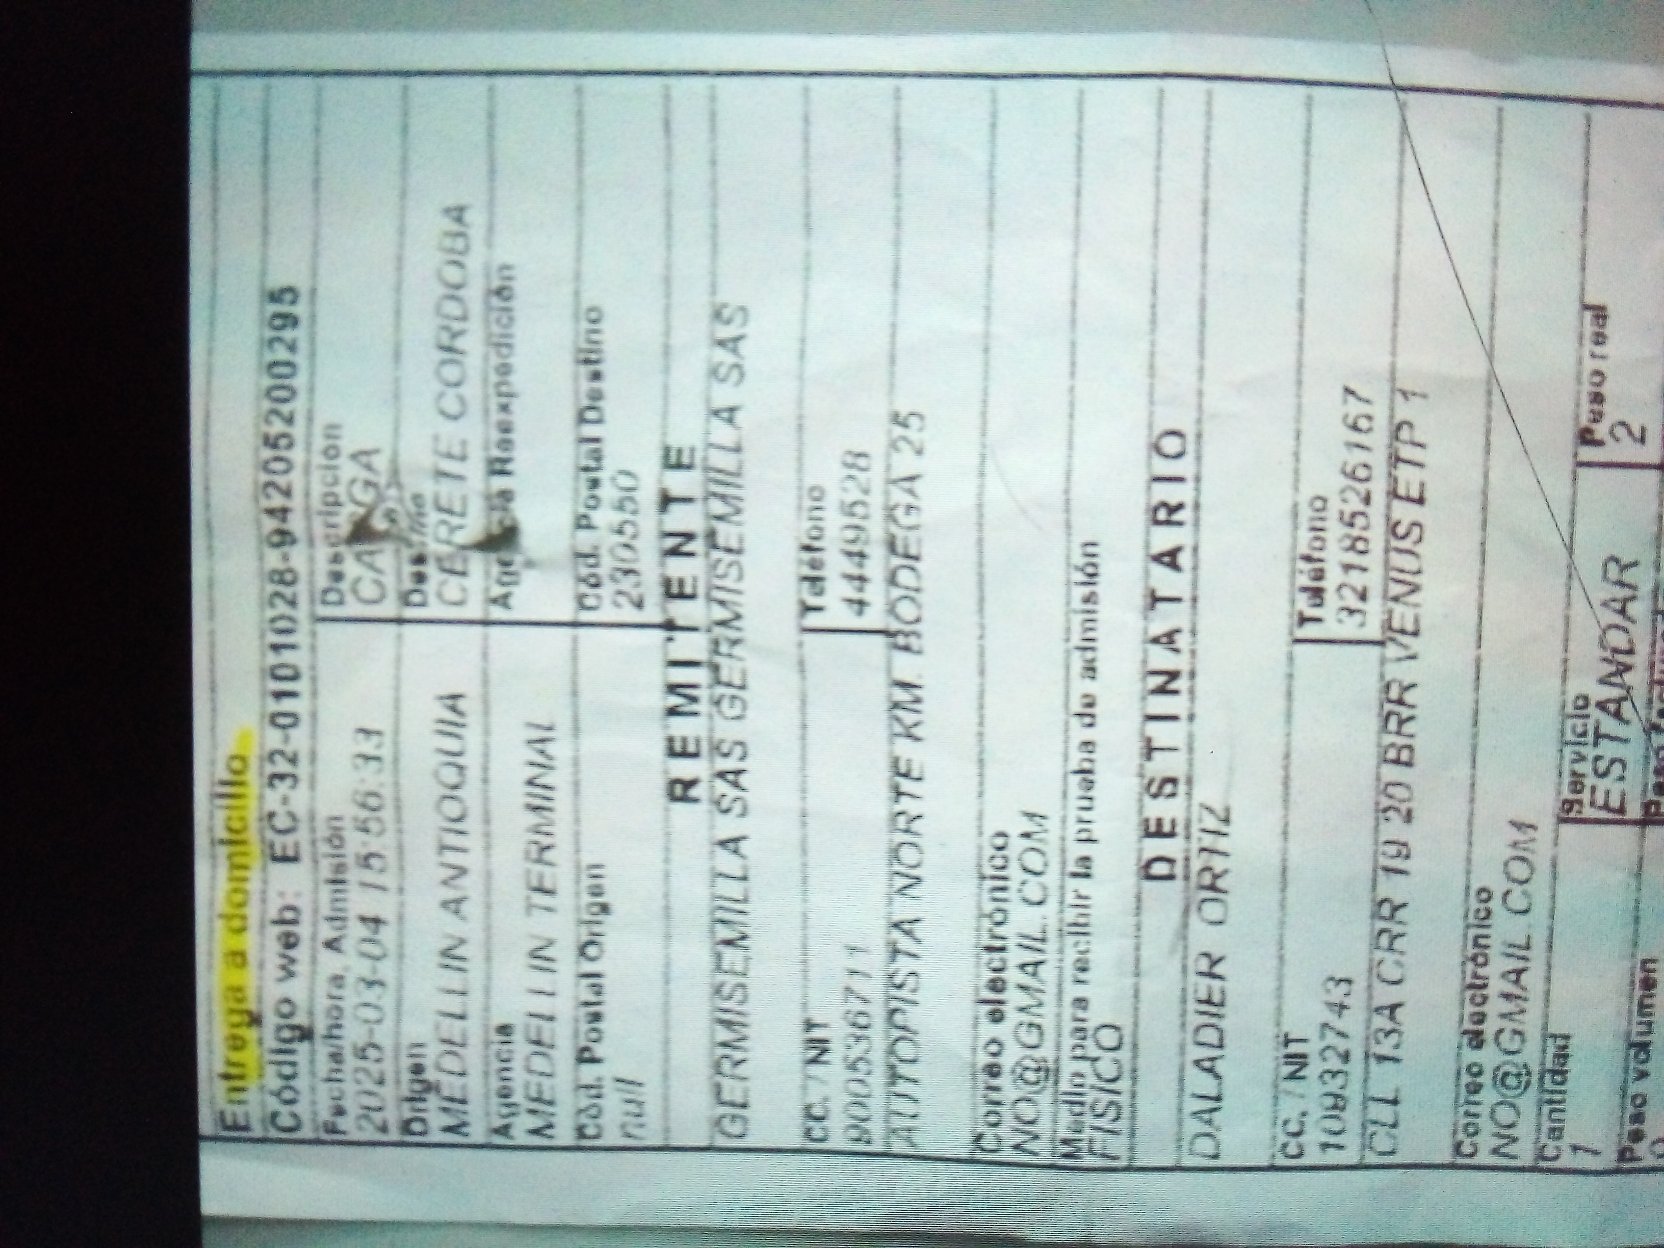 Entrega a domicilio
Código web: EC-32-0101028-94205200295
Fecha/hora Admisión Descripción
2025-03-04 15:56:33 CARGA
Origen Destino
MEDELLIN ANTIOQUIA CERETE CORDOBA
Agencia Agencia Reexpedición
MEDELLIN TERMINAL
Cód. Postal Origen Cód. Postal Destino
null 230550
REMITENTE
GERMISEMILLA SAS GERMISEMILLA SAS
CC. / NIT Teléfono
900536711 4449528
AUTOPISTA NORTE KM. BODEGA 25
Correo electrónico
NO@GMAIL.COM
Medio para recibir la prueba de admisión
FISICO
DESTINATARIO
DALADIER ORTIZ
CC. / NIT Teléfono
3218526167
CLL 13A CRR 19 20 BRR VENUS ETP 1
Correo electrónico
NO@GMAIL.COM
Cantidad Servicio Peso real
1 ESTANDAR 2
Peso volumen